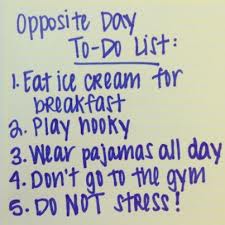 Opposite Day
To-Do List:
1. Eat ice cream for
breakfast
2. Play hooky
3. Wear pajamas all day
4. Don't go to the gym
5. DO NOT STRESS!